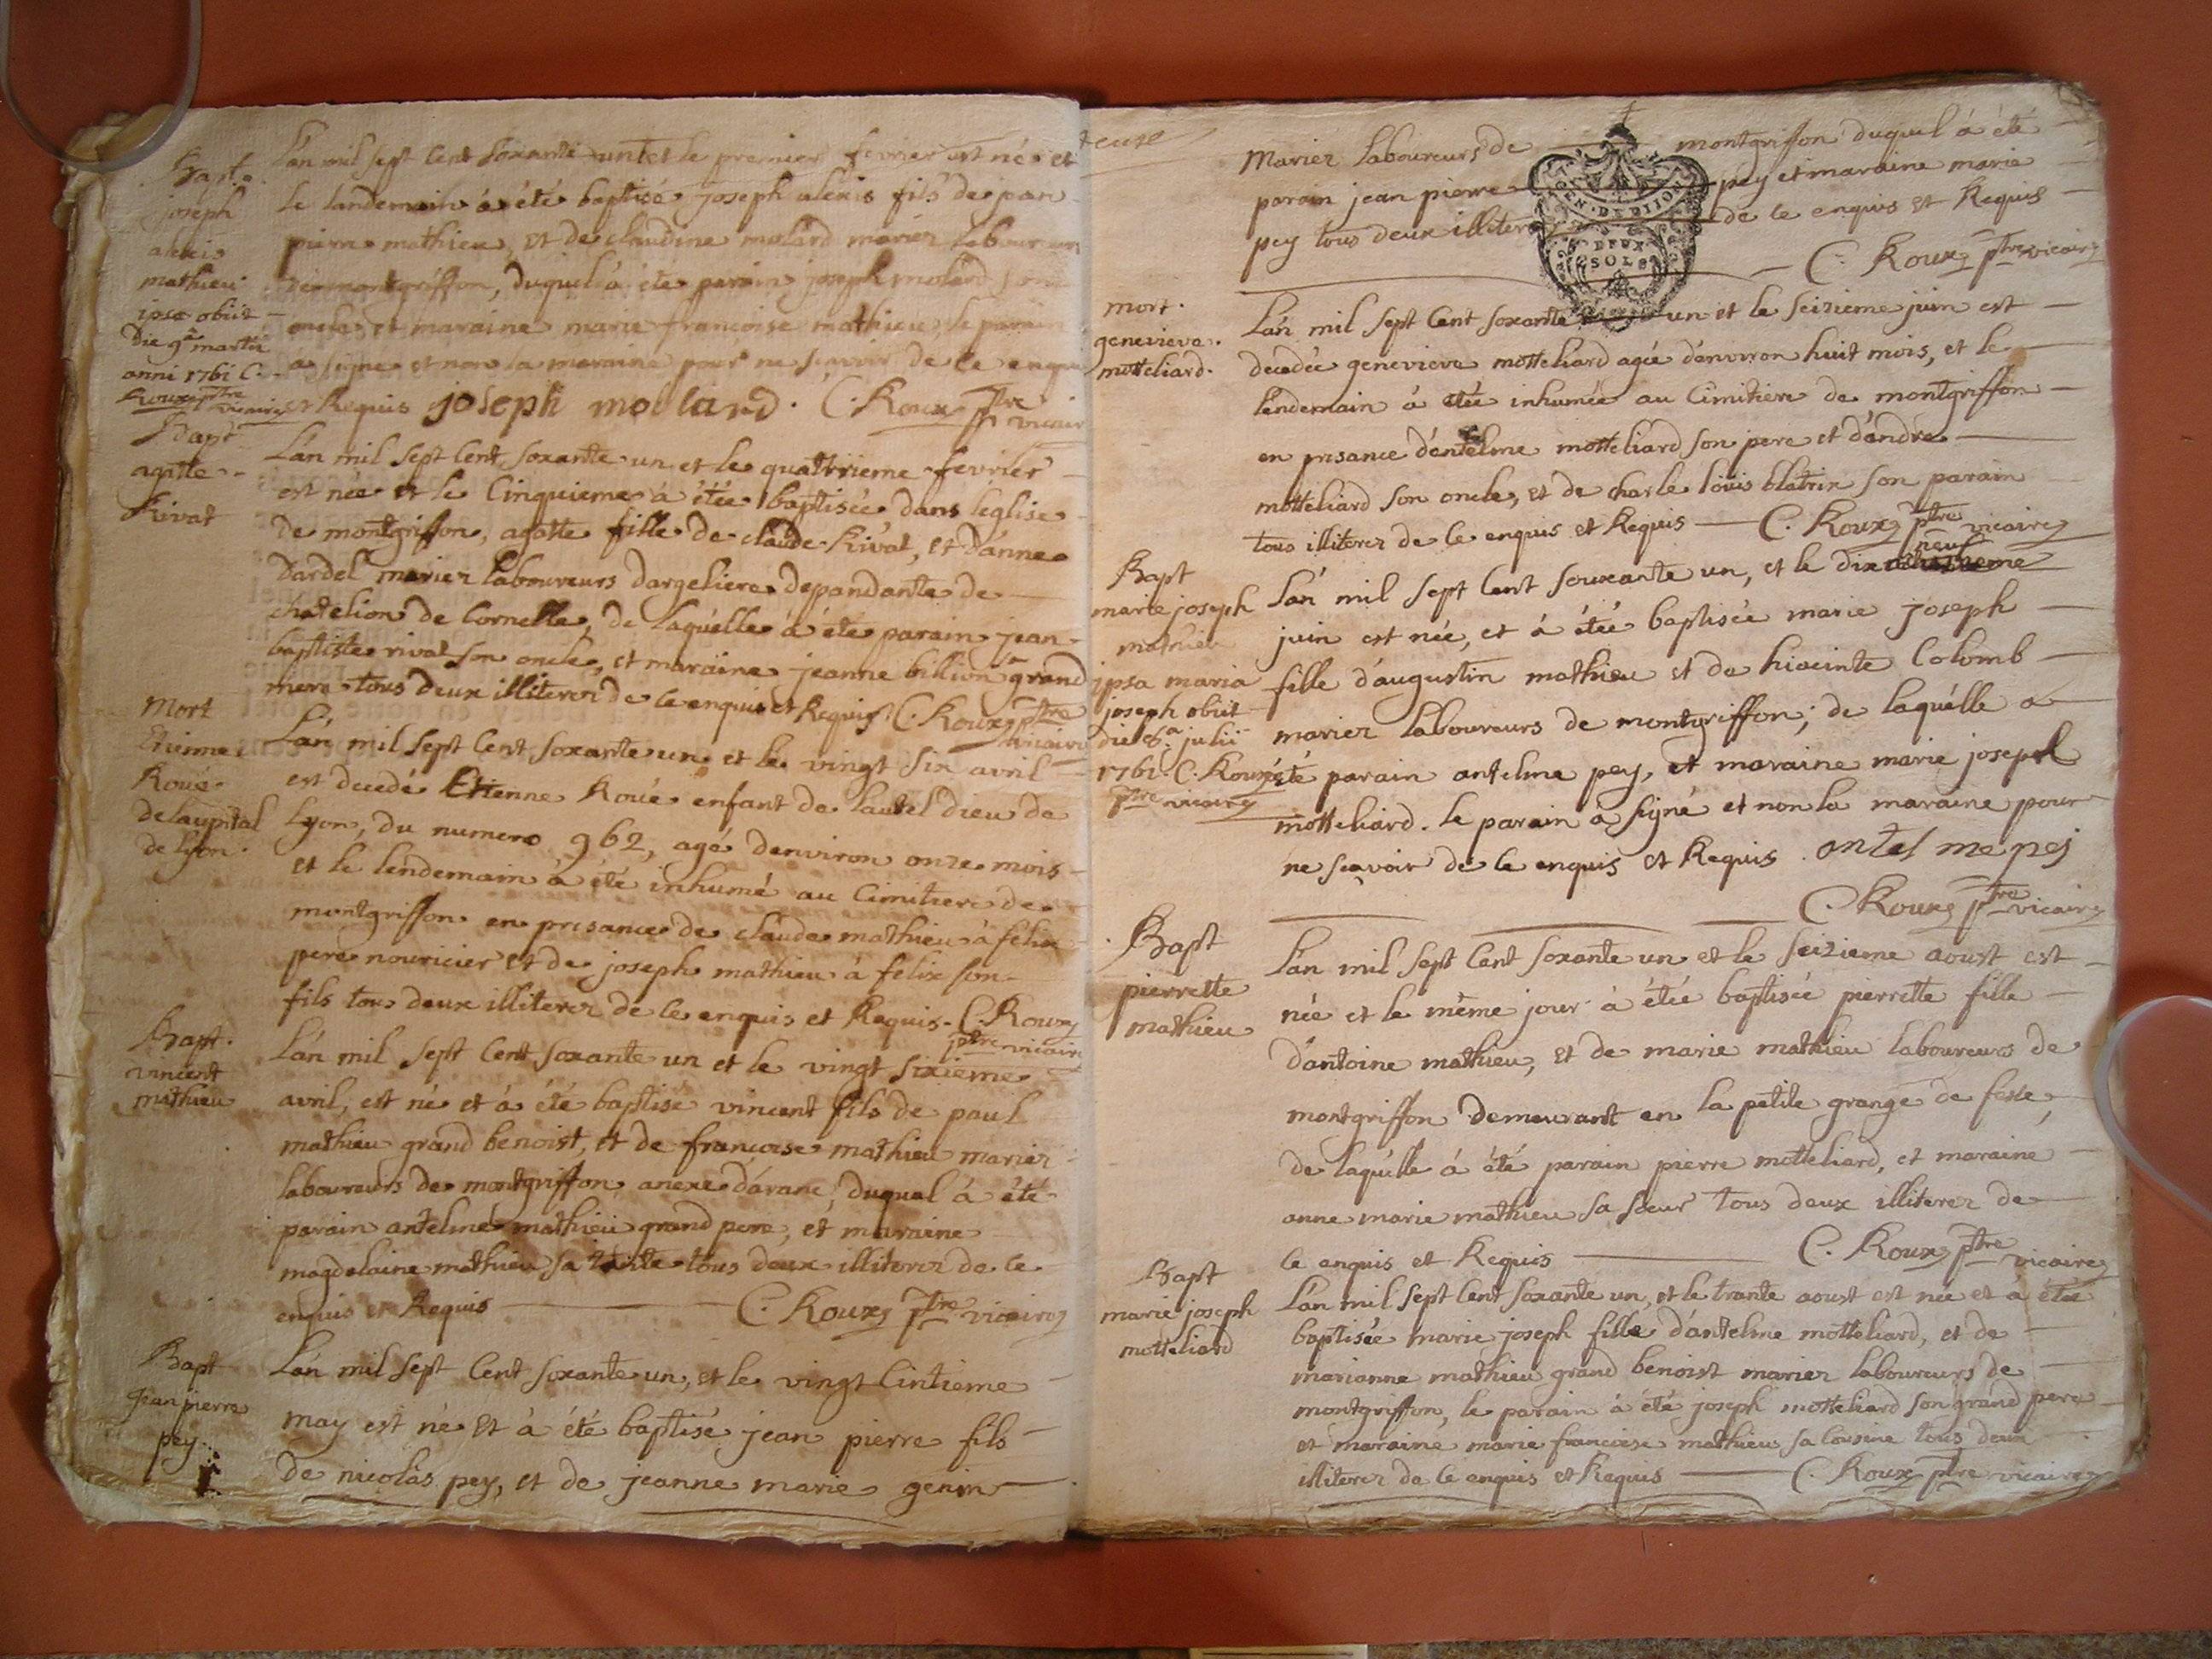 Bapt.
joseph
alexis
mathieu
ipse obiit
die 9a martii
anni 1761 C.
Roux ptre
vicaire
L'an mil sept Cent soxante un et le premier fevrier est né et
le landemain à été baptisé joseph alexis fils de jean
pierre mathieu, et de claudine molard mariez laboureurs
de montgriffon, duquel à été parain joseph molard son
oncle et maraine marie francoise mathieu, le parain
a signe et non la maraine pour ne scavoir de ce enquis
et Requis joseph mollard. C. Roux ptre
vicaire
Bapt
agatte
Rivat
L'an mil sept Cent soxante un et le quatrieme fevrier
est née et le Cinquieme à étée baptisée dans leglise
de montgriffon, agatte fille de claude Rivat, et d'anne
Dardel mariez laboureurs dargeliere dependante de
chatelion de Cornelle, de laquélle à été parain jean
baptiste rivat son oncle, et maraine jeanne billion sa grand
mere tous deux illiterez de ce enquis et Requis C. Roux ptre
vicaire
Mort
Etienne
Roué
de laupital
de lyon.
L'an mil sept Cent soxante un et le vingt six avril
est decedé Etienne Roué enfant de lautel dieu de
Lyon, du numero 962, agé denviron onze mois
et le lendemain à été inhumé au Cimitiere de
montgriffon en presance de claude mathieu à felix
pere nouricier et de joseph mathieu à felix son
fils tous deux illiterez de ce enquis et Requis. C. Roux
ptre vicaire
Bapt.
vincent
mathieu
L'an mil sept Cent soxante un et le vingt sixieme
avril, est né et à été baptisé vincent fils de paul
mathieu grand benoist, et de françoise mathieu mariez
laboureurs de montgriffon anexe d'aranc, duqual à été
parain antelme mathieu grand pere, et maraine
magdelaine mathieu sa tante tous deux illiterez de ce
enquis et Requis C. Roux ptre vicaire
Bapt
jean pierre
pey
L'an mil sept Cent soxante un, et le vingt Cintieme
may est né et à été baptisé jean pierre fils
de nicolas pey, et de jeanne marie genin
mariez laboureurs de montgriffon duquel à été
parain jean pierre pey et maraine marie
pey tous deux illiterez de ce enquis et Requis
EN · DE DIJON
DEUX
SOLS
C. Roux ptre vicaire
mort.
genevieve
motteliard.
L'an mil sept Cent soxante un et le seizieme juin est
decedée genevieve motteliard agée d'environ huit mois, et le
lendemain à etée inhumée au Cimitiere de montgriffon
en presance d'entelme motteliard son pere et d'andre
motteliard son oncle, et de charle louis blatrix son parain
tous illiterez de ce enquis et Requis C. Roux ptre vicaire
Bapt
marie joseph
mathieu
ipsa maria
joseph obiit
die 8a julii
1761. C. Roux
ptre vicaire
neuf
L'an mil sept Cent souxante un, et le dix huitieme
juin est née, et à étée baptisée marie joseph
fille d'augustin mathieu et de hiacinte Colomb
mariez laboureurs de montgriffon, de laquélle a
été parain antelme pey, et maraine marie joseph
motteliard. le parain à signé et non la maraine pour
ne scavoir de ce enquis et Requis. antel me pej
C. Roux ptre vicaire
Bapt
pierrette
mathieu
L'an mil sept Cent soxante un et le seizieme aoust est
née et le même jour à étée baptisée pierrette fille
d'antoine mathieu, et de marie mathieu laboureurs de
montgriffon demeurant en la petite grange de
de laquélle à été parain pierre motteliard, et maraine
anne marie mathieu sa soeur tous deux illiterez de
ce enquis et Requis C. Roux ptre vicaire
Bapt
marie joseph
motteliard
L'an mil sept Cent soxante un, et le trante aoust est née et à étée
baptisée marie joseph fille d'antelme motteliard, et de
marianne mathieu grand benoist mariez laboureurs de
montgriffon, le parain à été joseph motteliard son grand pere
et maraine marie francoise mathieu sa cousine tous deux
illiterez de ce enquis et Requis C. Roux ptre vicaire